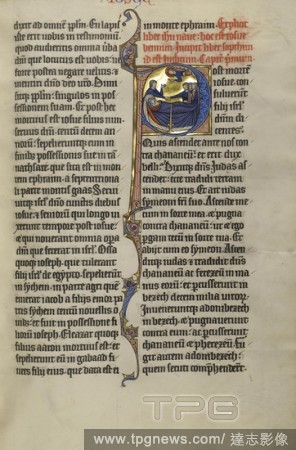 dixit ad omnem pplm. En lapis
iste erit vobis in testimoniū
quod audieritis omnia uba
dni que locutus est vobis: ne
forte postea negare velitis, &
mentiri dno deo uro. Dimi
sitqz pplm: singulos in pos
sessionem suam. Et post hec
mortuus est iosue filius nun
servus dni: centū decem an
norū: sepelieruntqz eum in
finibz possessionis sue in tā
nathsare. que sita est in mon
ten ephraim. a septentriona
li parte montis gaas. Servi
uitqz isrl dno cunctis diebus
iosue: & seniorū qui longo ui
xerunt tempore post iosue:
& qui noverant omnia opa
dni que fecerat in isrl. Ossa
quoqz ioseph. que tulerant
filij isrl de egypto. sepelierūt
in sychen. in parte agri quē
emerat iacob a filijs emor pa
tris sychen centū novellis o
vibz: & fuit in possessione fi
liorū ioseph. Eleazar quoqz
filius aaron mortuus est: &
sepelierunt eū in gabaad fi
nees filij eius. que data est ei
in monte ephraim. Explicit
liber
Incipit liber
Post
mortē
iosue.
con
sulue
runt
filij isrl
dnm di
centes.
Quis ascendet ante nos con
tra chananeū: & erit dux
belli: Dixitqz dns. Iudas as
cendet: ecce tradidi terram
in manu eius. Et ait iudas
symeoni fri suo. Ascende me
cum in sorte mea. & pugna
contra chananeū: ut & ego
pgam tecū in sorte tua. Et
abijt cum eo symeon. Ascen
ditqz iudas & tradidit dns
chananeū ac ferezeū in ma
nus eorū: & pcusserunt in
bezech decem milia virorū.
Inveneruntqz adonibezech
in bezech. & pugnaverunt
contra eum: ac pcusserunt
chananeū & pherezeū. Fu
git autem adonibezech:
quem secuti comphendert
TPG
www.tpgnews.com / 達志影像